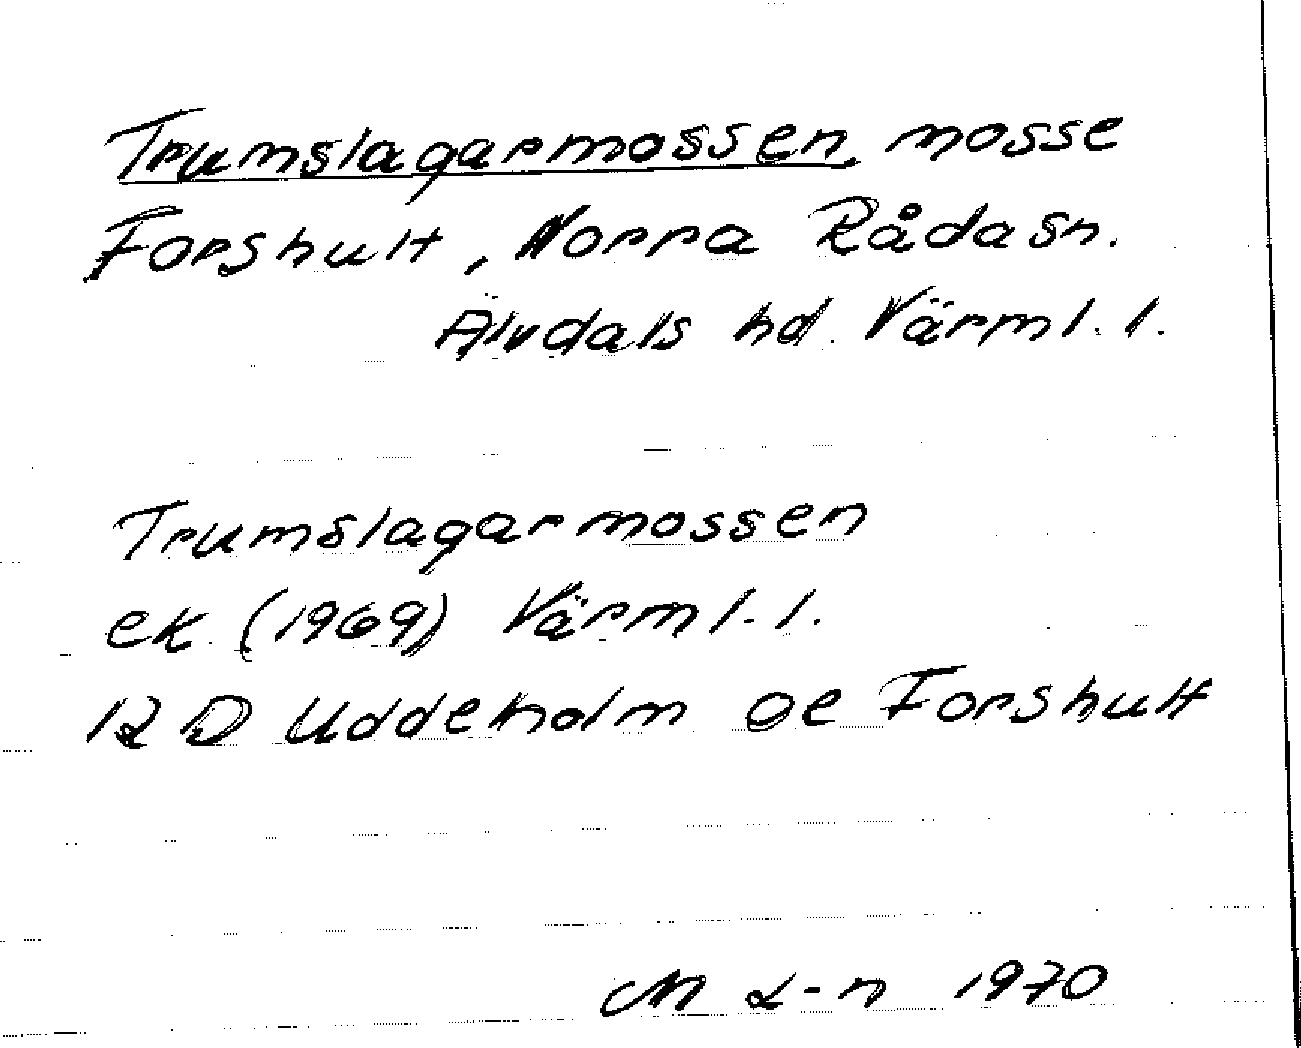 Trumslagarmossen, mosse
Forshult, Norra Råda sn.
Älvdals hd. Värml. l.
Trumslagarmossen
ek. (1969) Värml. l.
12 D Uddeholm oe Forshult
M L-n 1970